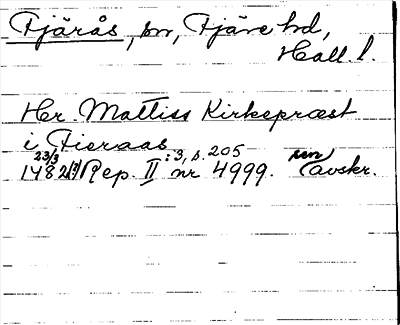 Fjärås, sn, Fjäre hd,
Hall. l.
Her Mattiss Kirkepræst
i Fieraas
23/3 :3, s. 205
1482 Rep. II nr 4999. sen avskr.